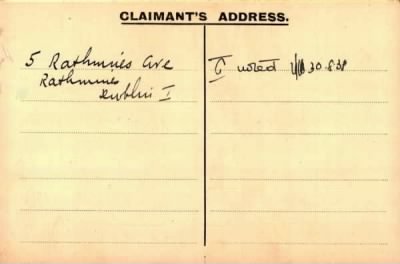 CLAIMANT'S ADDRESS.
5 Rathmines Ave
Rathmines
Dublin I
noted 30.8.38